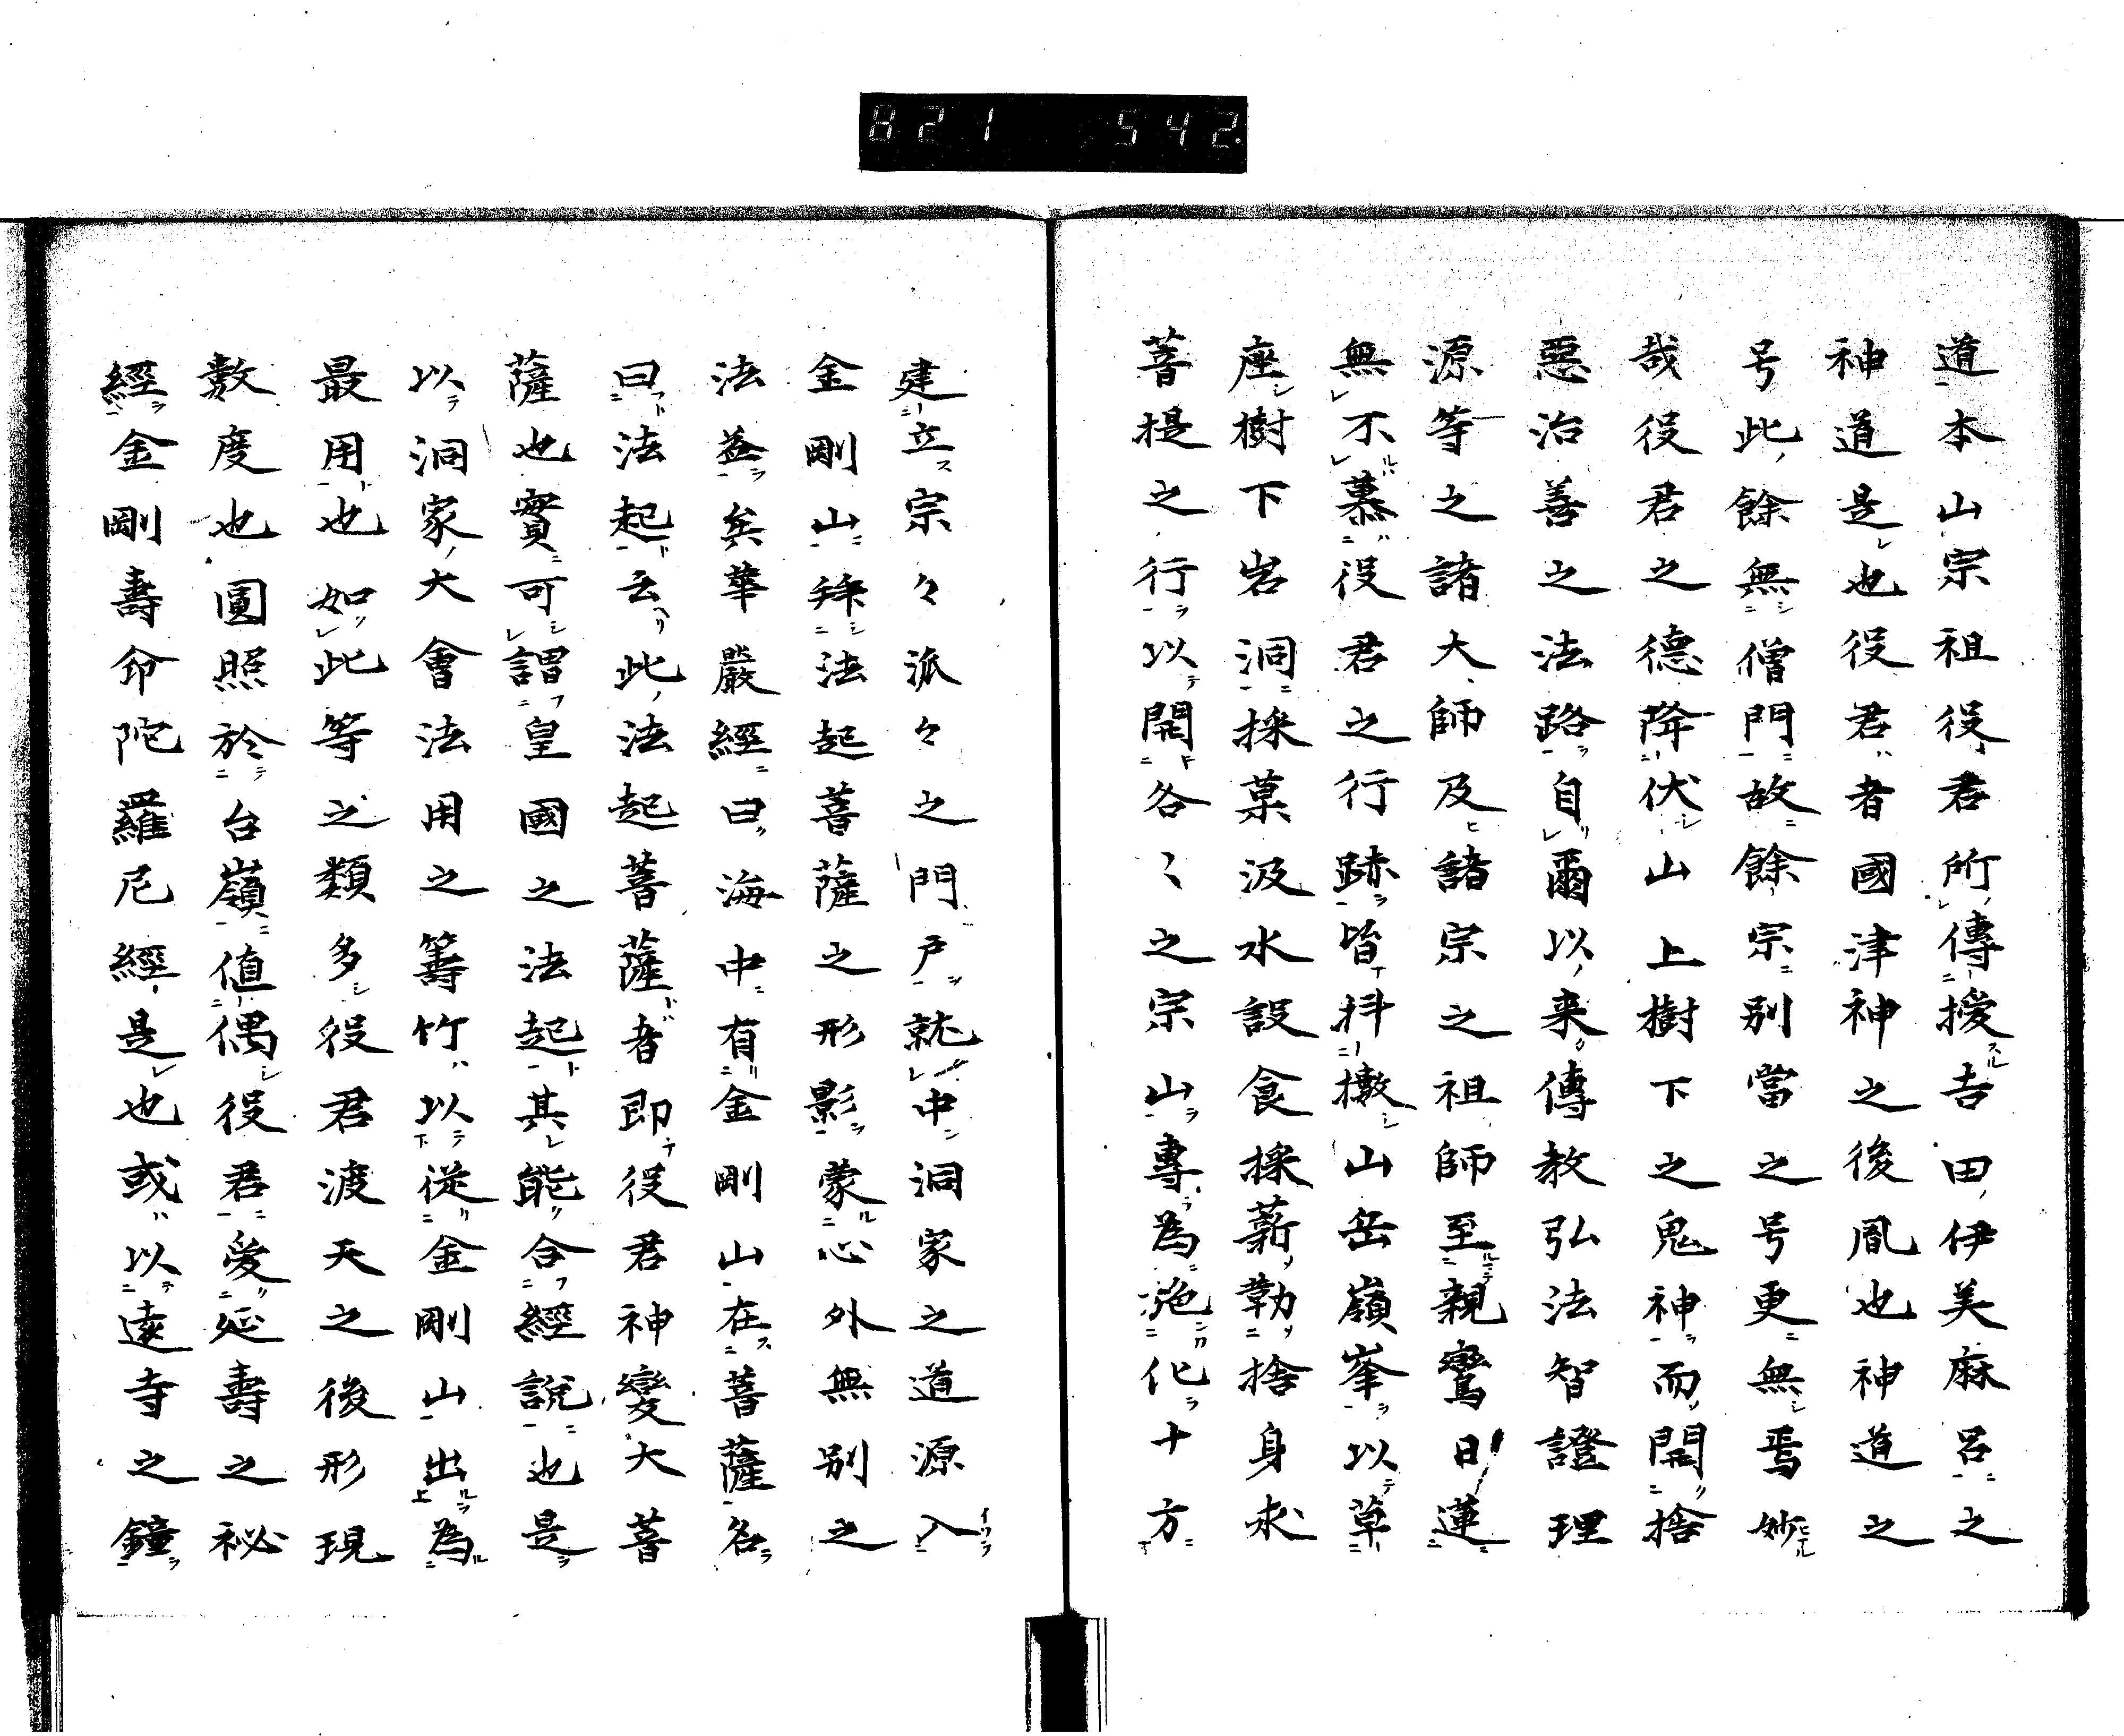 821 542
道本山宗祖役君所傳授吉田伊美麻呂之
神道是也役君者國津神之後胤也神道之
号此餘無僧門故餘宗別當之号更無焉妙
哉役君之德降伏山上樹下之鬼神而開捨
惡治善之法路自爾以来傳教弘法智證理
源等之諸大師及諸宗之祖師至親鸞日蓮
無不慕役君之行跡皆抖擻山岳嶺峯以草
座樹下岩洞採菓汲水設食採薪勤捨身求
菩提之行以開各〻之宗山專為施化十方
建立宗々派々之門戸就中洞家之道源入
金剛山拜法起菩薩之形影蒙心外無別之
法益矣華嚴經曰海中有金剛山在菩薩名
曰法起云此法起菩薩者即役君神變大菩
薩也實可謂皇國之法起其能合經說也是
以洞家大會法用之籌竹以從金剛山出為
最用也如此等之類多役君渡天之後形現
數度也圓照於台嶺値偶役君受延壽之祕
經金剛壽命陀羅尼經是也或以遠寺之鐘